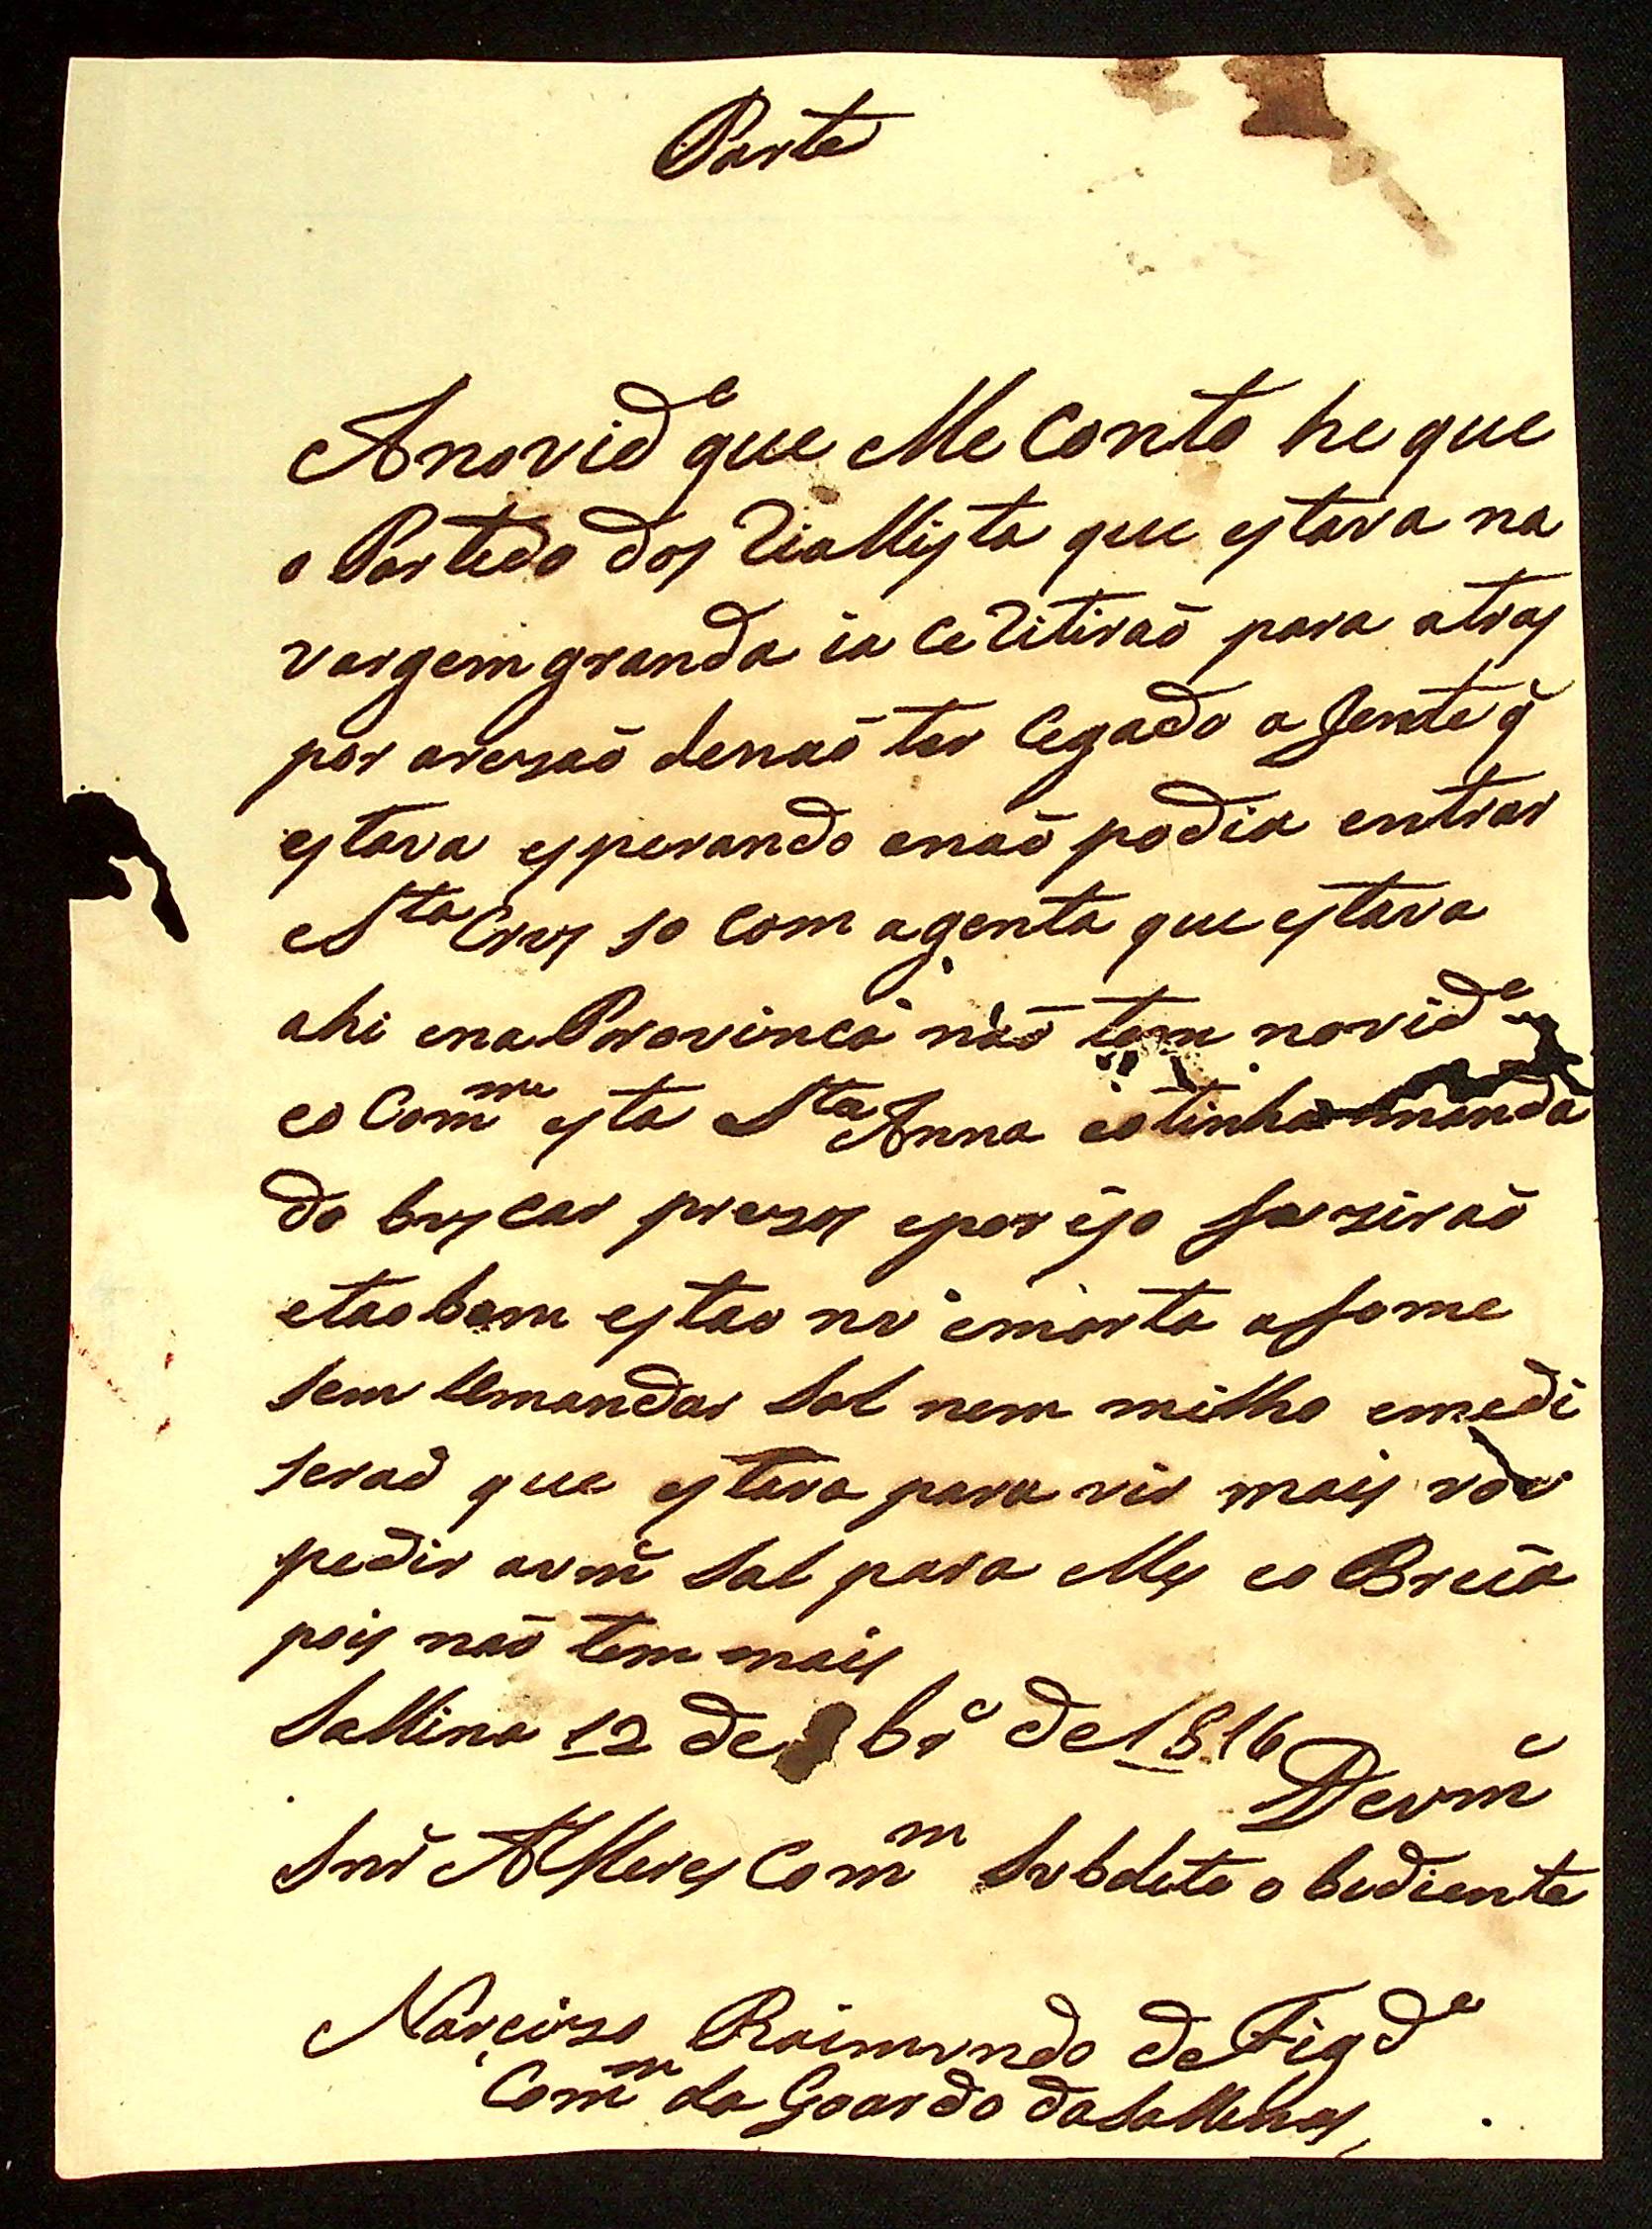 Parte
A novid.e que Me Conto he que
o Partedo dos Riallista que estava na
vargem granda ia Ce Ritiraõ para atras
por aresaõ de naõ ter Cegado a Jente q̃
estava esperando enaõ podia entrar
e S.ta Crus so Com a genta que estava
ahi ena Provinca não tem novid.e
eo Com.me esta S.ta Anna eo tinha manda
do buscar presos epor iso
etaobem estao no emorta a fome
sem lemandar Sal nem milho emedi
seraõ que estava para vir mais
pedir avm.ce Sal para elles eo
pois naõ tem mais
Sallina 12 de br.o de 1816
Devm.ce
Snr̃ Alferes Com.m Subdito obediente
Narcizo Raimundo de Figd.o
Com.m da Goardo da Sallinas